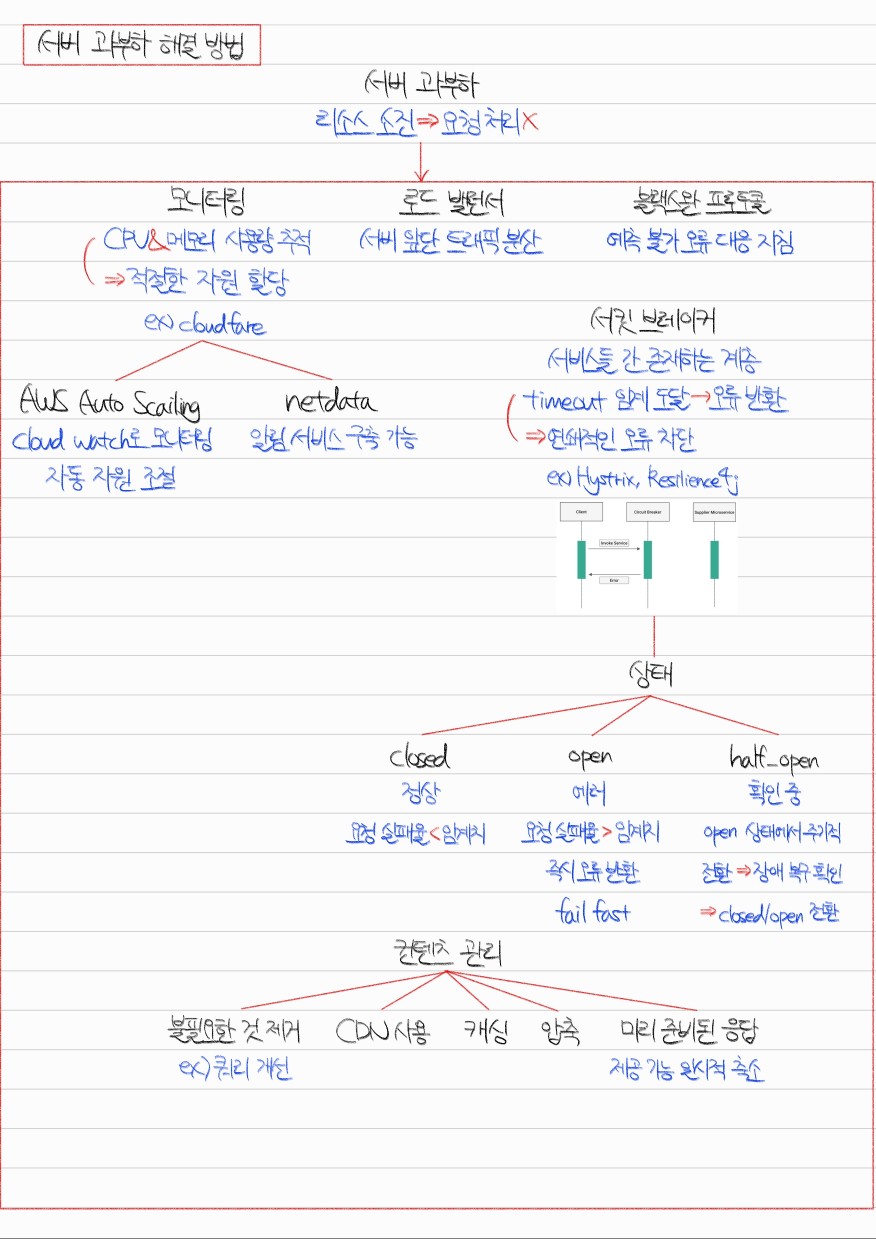 서버 과부하 해결 방법
서버 과부하
리소스 소진 ⇒ 요청 처리 X
모니터링
CPU&메모리 사용량 추적
⇒ 적절한 자원 할당
ex) cloudfare
AWS Auto Scailing
cloud watch로 모니터링
자동 자원 조절
netdata
알림 서비스 구축 가능
로드 밸런서
서버 앞단 트래픽 분산
블랙스완 프로토콜
예측 불가 오류 대응 지침
서킷 브레이커
서비스들 간 존재하는 계층
timeout 임계 도달 → 오류 반환
⇒ 연쇄적인 오류 차단
ex) Hystrix, Resilience4j
Client
Circuit Breaker
Supplier Microservice
Invoke Service
Error
상태
closed
정상
요청 실패율 < 임계치
open
에러
요청 실패율 > 임계치
즉시 오류 반환
fail fast
half_open
확인 중
open 상태에서 주기적
전환 ⇒ 장애 복구 확인
⇒ closed/open 전환
컨텐츠 관리
불필요한 것 제거
ex) 쿼리 개선
CDN 사용
캐싱
압축
미리 준비된 응답
제공 기능 일시적 축소